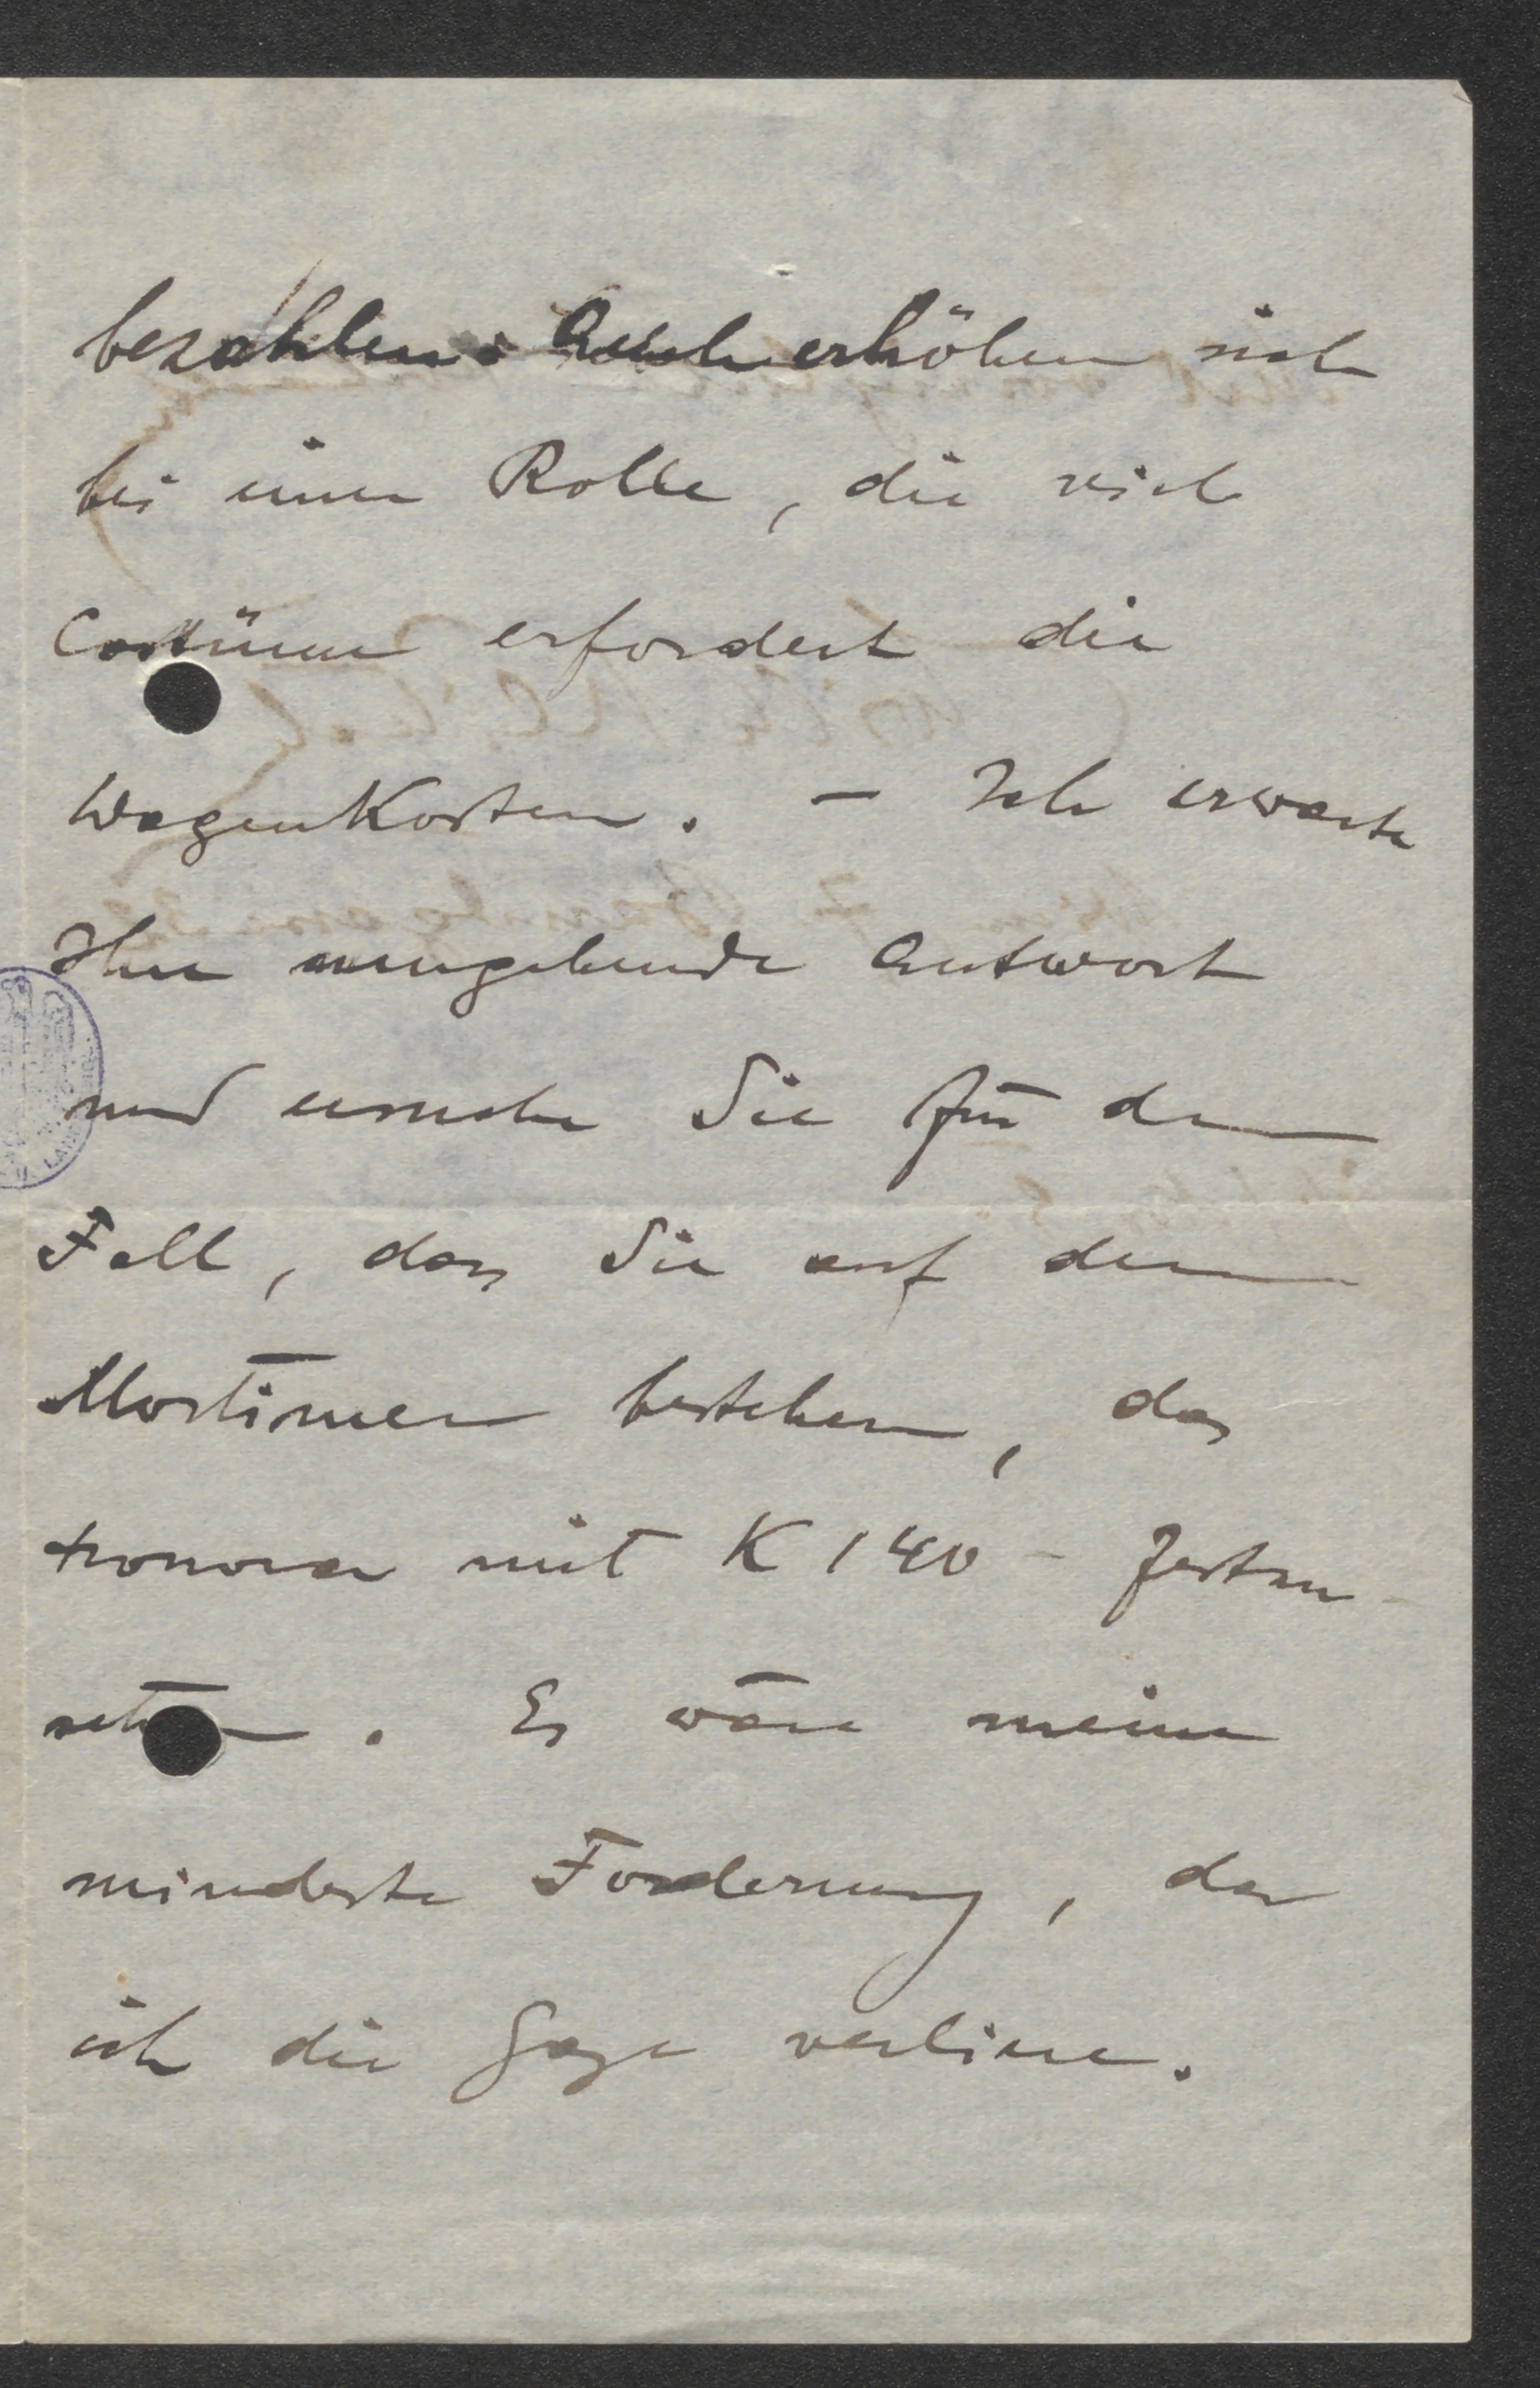 bezahlen. Auch erhöhen sich
bei einer Rolle, die viel
Costüme erfordert die
Wagenkosten. – Ich erwarte
Ihre umgehende Antwort
und ersuche Sie für den
Fall, dass Sie auf dem
Mortimer bestehen, das
Honorar mit K 140 – festzu-
setzen. Es wäre meine
mindeste Forderung, da
ich die Gage verliere.